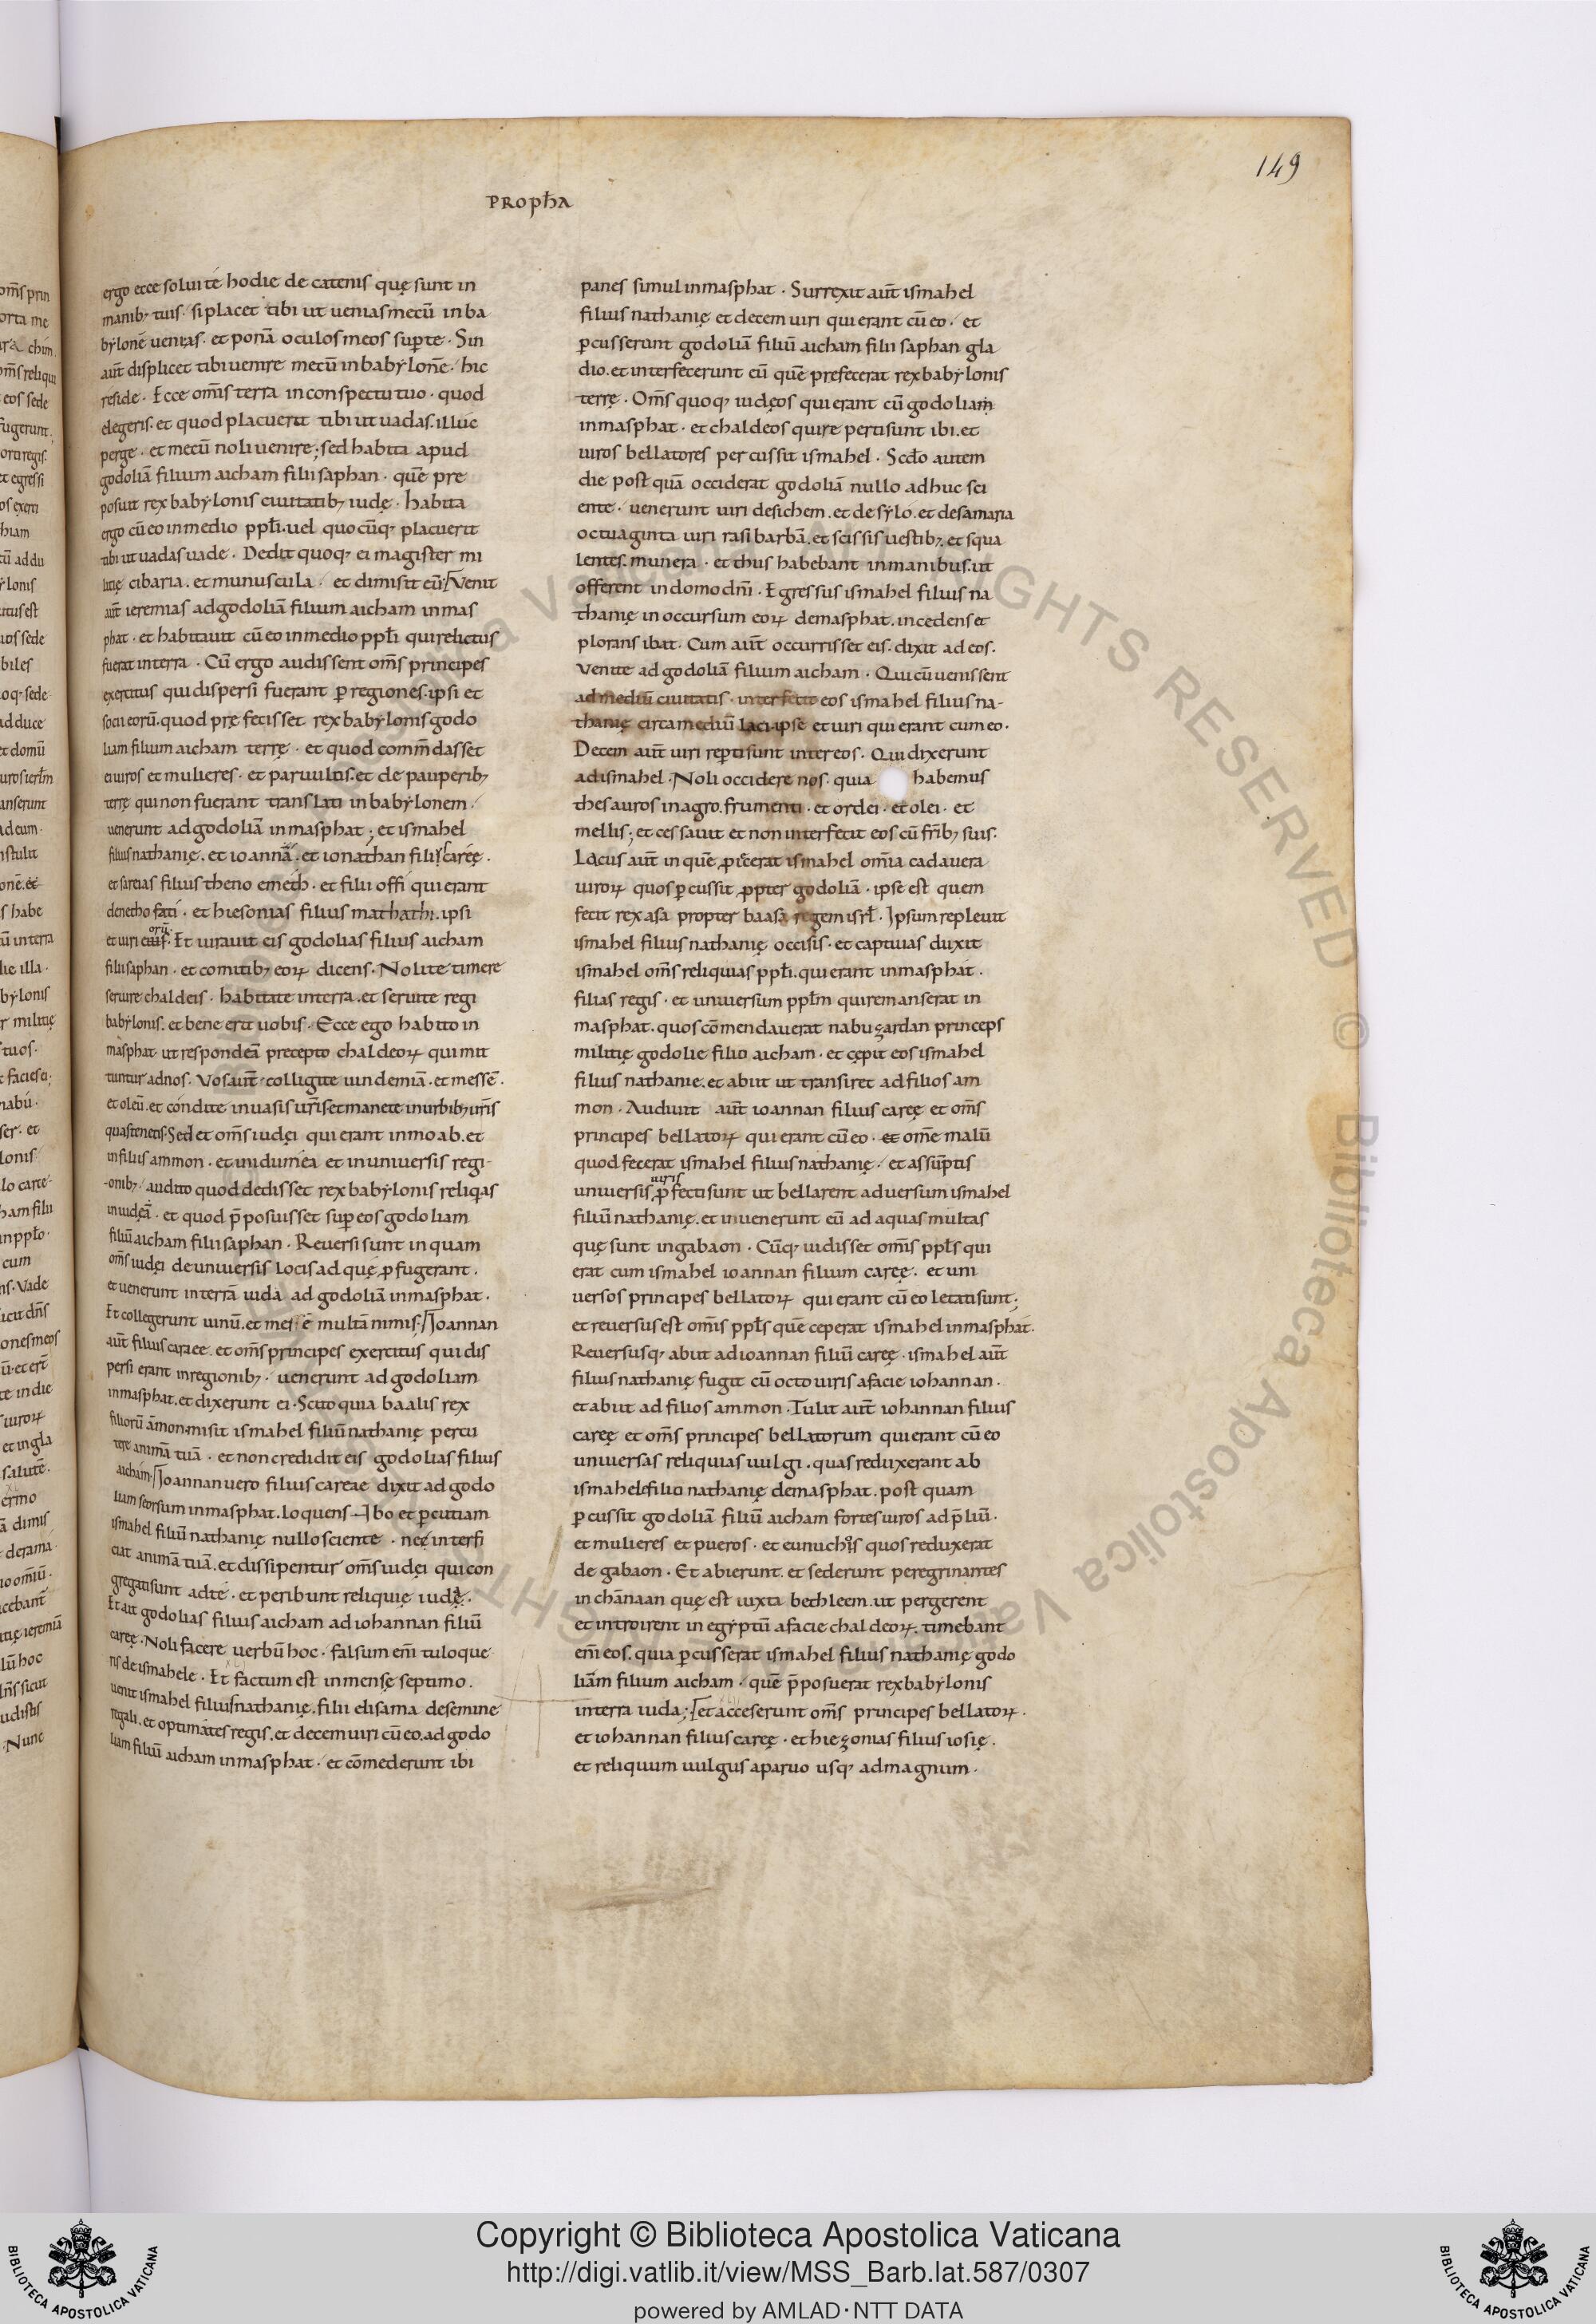 149
PROPħA
ergo ecce solui té hodie de catenis quę sunt in
manibꝫ tuis· si placet tibi ut uenias mecū in ba
bylonē uenias· et ponā oculos meos sup̄ te· Sin
aūt displicet tibi uenire mecū in babylonē· hic
reside· Ecce om̄is terra in conspectu tuo· quod
elegeris· et quod placuerit tibi ut uadas· illúc
perge· et mecū noli uenire; sed habita apud
godoliā filium aicham filii saphan· quē pre
posuit rex babylonis ciuitatibꝫ iudę· habita
ergo cū eo in medio ppłi· uel quocūqꝫ placuerit
tibi ut uadas uade· Dedit quoqꝫ ei magister mi
litię cibaria· et munuscula· et dimisit eū· Venit
aūt ieremias ad godoliā filium aicham in mas
phat· et habitauit cū eo in medio ppłi qui relictus
fuerat in terra· Cū ergo audissent om̄s principes
exercitus qui dispersi fuerant p̱ regiones· ipsi et
socii eorū· quod pre fecisset rex babylonis godo
liam filium aicham terrę· et quod comm̄dasset
ei uiros et mulieres· et paruulos· et de pauperibꝫ
terrę qui non fuerant translati in babylonem·
uenerunt ad godoliā in masphat; et ismahel
filius nathanię· et ioannā· et ionathan filii careę·
et sareias filius theno emeth· et filii offi qui erant
denetho fati· et hiesonias filius mathathi· ipsi
et uiri eorū· Et iurauit eis godolias filius aicham
filii saphan· et comitibꝫ eoꝝ dicens· Nolite timere
seruire chaldeis· habitate in terra· et seruite regi
babylonis· et bene erit uobis· Ecce ego habito in
masphat· ut respondeā precepto chaldeoꝝ qui mit
tuntur ad nos· Vos aūt colligite uindemiā· et messē·
et oleū· et condite in uasis ur̄is et manete in urbibꝫ ur̄is
quas tenetis· Sed et om̄s iudęi qui erant in moab· et
in filiis ammon· et in idumea et in uniuersis regi
-onibꝫ· audito quod dedisset rex babylonis reliqias
in iudęā· et quod p̄posuisset sup̄ eos godoliam
filiū aicham filii saphan· Reuersi sunt in quam
om̄s iudęi de uniuersis locis ad quę ꝓfugerant·
et uenerunt in terrā iuda ad godoliā in masphat·
Et collegerunt uinū· et messē multā nimis· Ioannan
aūt filius careae· et om̄s principes exercitus qui dis
persi erant in regionibꝫ· uenerunt ad godoliam
in masphat· et dixerunt ei· Scito quia baalis rex
filiorū āmon· misit ismahel filiū nathanię percu
tere animā tuā· et non credidit eis godolias filius
aicham· Ioannan uero filius careae dixit ad godo
liam seorsum in masphat· loquens· Ibo et p̱cutiam
ismahel filiū nathanię nullo sciente· nec interfi
ciat animā tuā· et dissipentur om̄s iudęi qui con
gregati sunt ad té· et peribunt reliquię iudę·
Et ait godolias filius aicham ad iohannan filiū
careę· Noli facere uerbū hoc· falsum em̄ tu loque
ris de ismahele· Et factum est in mense septimo·
uenit ismahel filius nathanię· filii elisama de semine
regali· et optimates regis· et decem uiri cū eo· ad godo
liam filiū aicham in masphat· et cōmederunt ibi
panes simul in masphat· Surrexit aūt ismahel
filius nathanię et decem uiri qui erant cū eo· et
p̱cusserunt godoliā filiū aicham filii saphan gla
dio· et interfecerunt eū quē prefecerat rex babylonis
terrę· Om̄s quoqꝫ iudęos qui erant cū godoliam
in masphat· et chaldeos qui re perti sunt ibi· et
uiros bellatores percussit ismahel· Scd̄o autem
die post quā occiderat godoliā nullo adhuc sci
ente· uenerunt uiri de sichem· et de sylo· et de samaria
octuaginta uiri rasi barbā· et scissis uestibꝫ· et squa
lentes· munera· et thus habebant in manibus· ut
offerent in domo dn̄i· Egressus ismahel filius na
thanię in occursum eoꝝ de masphat· incedens et
plorans ibat· Cum aūt occurrisset eis· dixit ad eos·
Venite ad godoliā filium aicham· Qui cū uenissent
ad mediū ciuitatis· interfecit eos ismahel filius na-
thanię circa mediū laci· ipse et uiri qui erant cum eo·
Decem aūt uiri rep̱ti sunt inter eos· Qui dixerunt
ad ismahel· Noli occidere nos· quia habemus
thesauros in agro· frumenti· et ordei· et olei· et
mellis; et cessauit et non interfecit eos cū fr̄ibꝫ suis·
Lacus aūt in quē ꝓiecerat ismahel om̄ia cadauera
uiroꝝ quos p̱cussit ꝓpter godoliā· ipse est quem
fecit rex asa propter baasa regem isrł· Ipsum repleuit
ismahel filius nathanię occisis· et captiuas duxit
ismahel om̄s reliquias ppłi· qui erant in masphat·
filias regis· et uniuersum ppłm qui remanserat in
masphat· quos cōmendauerat nabuzardan princeps
militię godolie filio aicham· et cępit eos ismahel
filius nathanie· et abiit ut transiret ad filios am
mon· Audiuit aūt ioannan filius careę et om̄s
principes bellatoꝝ qui erant cū eo· et om̄e malū
quod fecerat ismahel filius nathanię· et assūptis
uniuersis uiris ꝓfecti sunt ut bellarent aduersum ismahel
filiū nathanię· et inuenerunt eū ad aquas multas
quę sunt in gabaon· Cūqꝫ uidisset om̄is ppłs qui
erat cum ismahel ioannan filium careę· et uni
uersos principes bellatoꝝ qui erant cū eo letati sunt;
et reuersus est om̄is ppłs quē ceperat ismahel in masphat·
Reuersusqꝫ abiit ad ioannan filiū careę· ismahel aūt
filius nathanię fugit cū octo uiris a facie iohannan·
et abiit ad filios ammon· Tulit aūt iohannan filius
careę et om̄s principes bellatorum qui erant cū eo
uniuersas reliquias uulgi· quas reduxerant ab
ismahele filio nathanię de masphat· post quam
p̱cussit godoliā filiū aicham fortes uiros ad p̄liū·
et mulieres et pueros· et eunuchos quos reduxerat
de gabaon· Et abierunt· et sederunt peregrinantes
in chānaan quę est iuxta bethleem· ut pergerent
et introirent in egyptū a facie chaldeoꝝ· timebant
em̄ eos· quia p̱cusserat ismahel filius nathanię godo
liām filium aicham· quē p̄posuerat rex babylonis
in terra iuda; et acceserunt om̄s principes bellatoꝝ·
et iohannan filius careę· et hiezonias filius iosię·
et reliquum uulgus a paruo usqꝫ ad magnum·
Copyright © Biblioteca Apostolica Vaticana
http://digi.vatlib.it/view/MSS_Barb.lat.587/0307
powered by AMLAD·NTT DATA
BIBLIOTECA APOSTOLICA VATICANA
BIBLIOTECA APOSTOLICA VATICANA